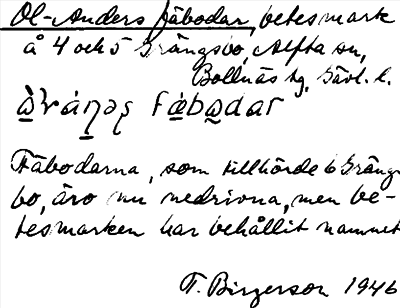 Ol-Anders fäbodar, betesmark
å 4 och 5 Grängsbo, Alfta sn,
Bollnäs tg, Gävl. l.
fäbodar
Fäbodarna, som tillhörde 6 Gräng
bo, äro nu nedrivna, men be-
tesmarken har behållit namnet
T. Birgerson 1946